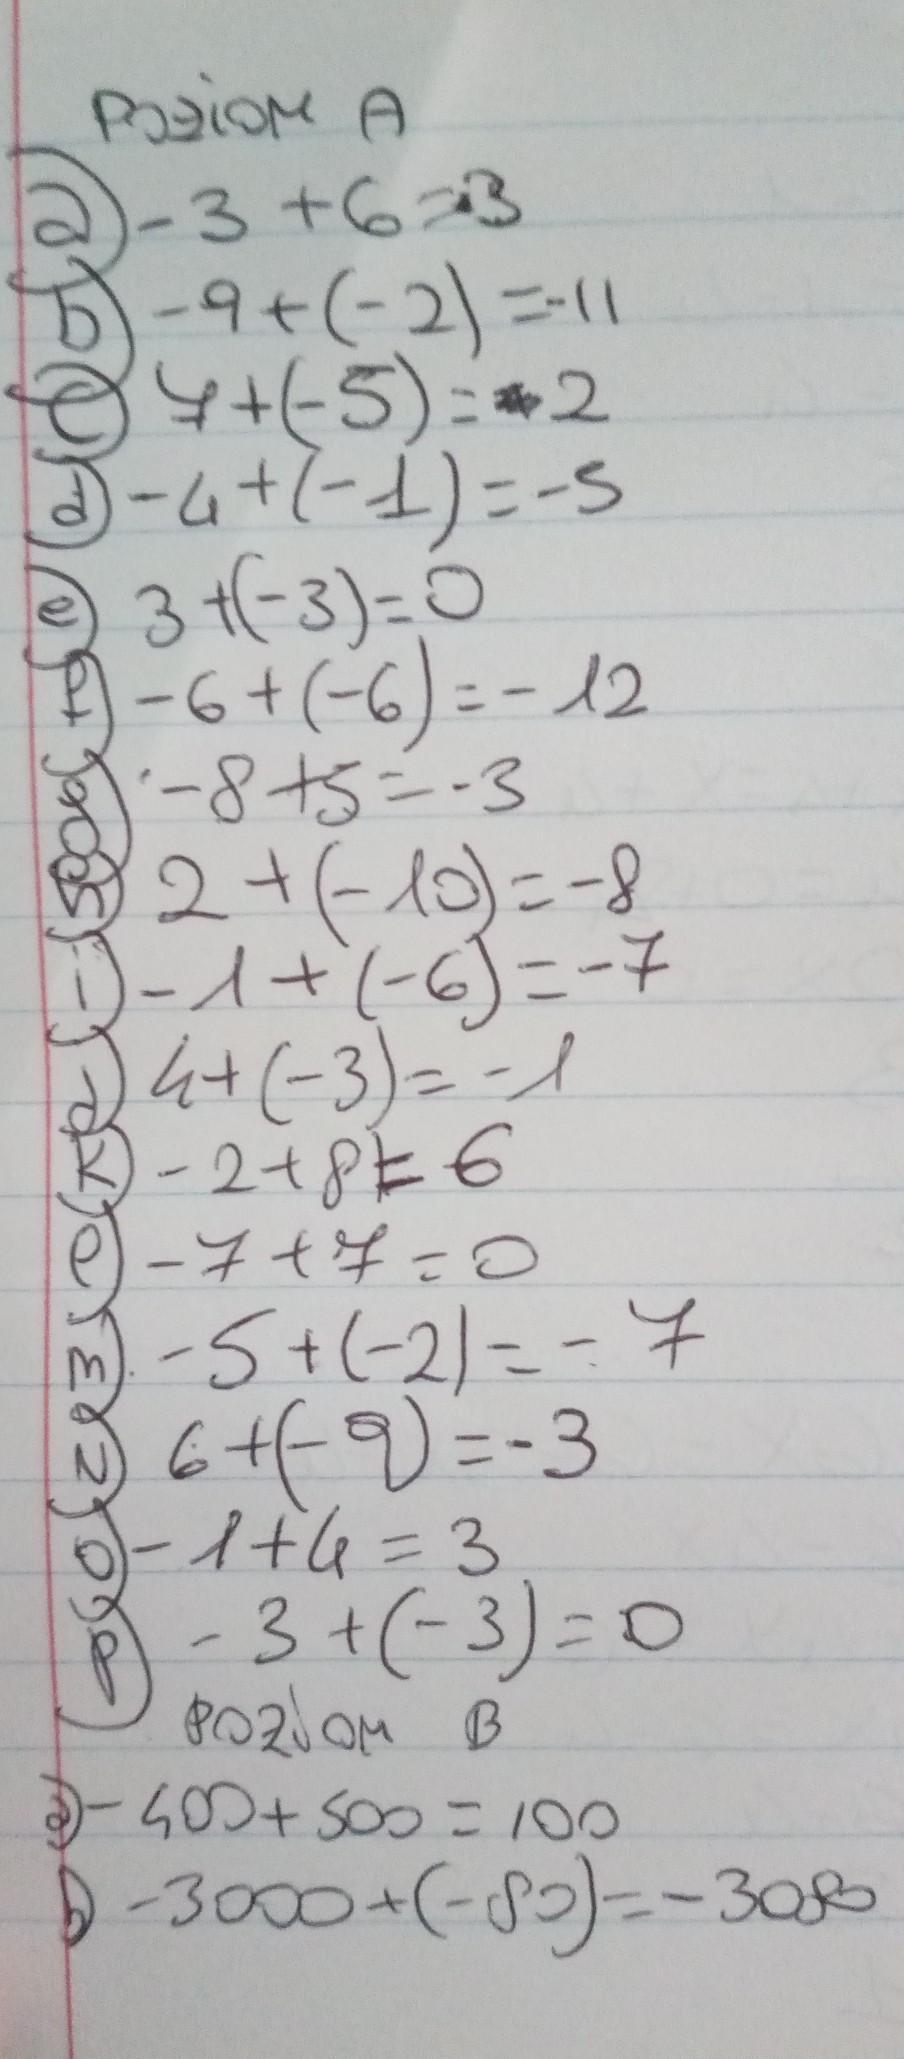 Poziom A
a) -3 +6=3
b) -9+(-2)=-11
c) 7+(-5)=2
d) -4+(-1)=-5
e) 3+(-3)=0
f) -6+(-6)=-12
g) -8+5=-3
h) 2+(-10)=-8
i) -1+(-6)=-7
j) 4+(-3)=-1
k) -2+8=6
l) -7+7=0
m) -5+(-2)=-7
n) 6+(-9)=-3
o) -1+4=3
p) -3+(-3)=0
POZIOM B
a) -400+500=100
b) -3000+(-80)=-3080